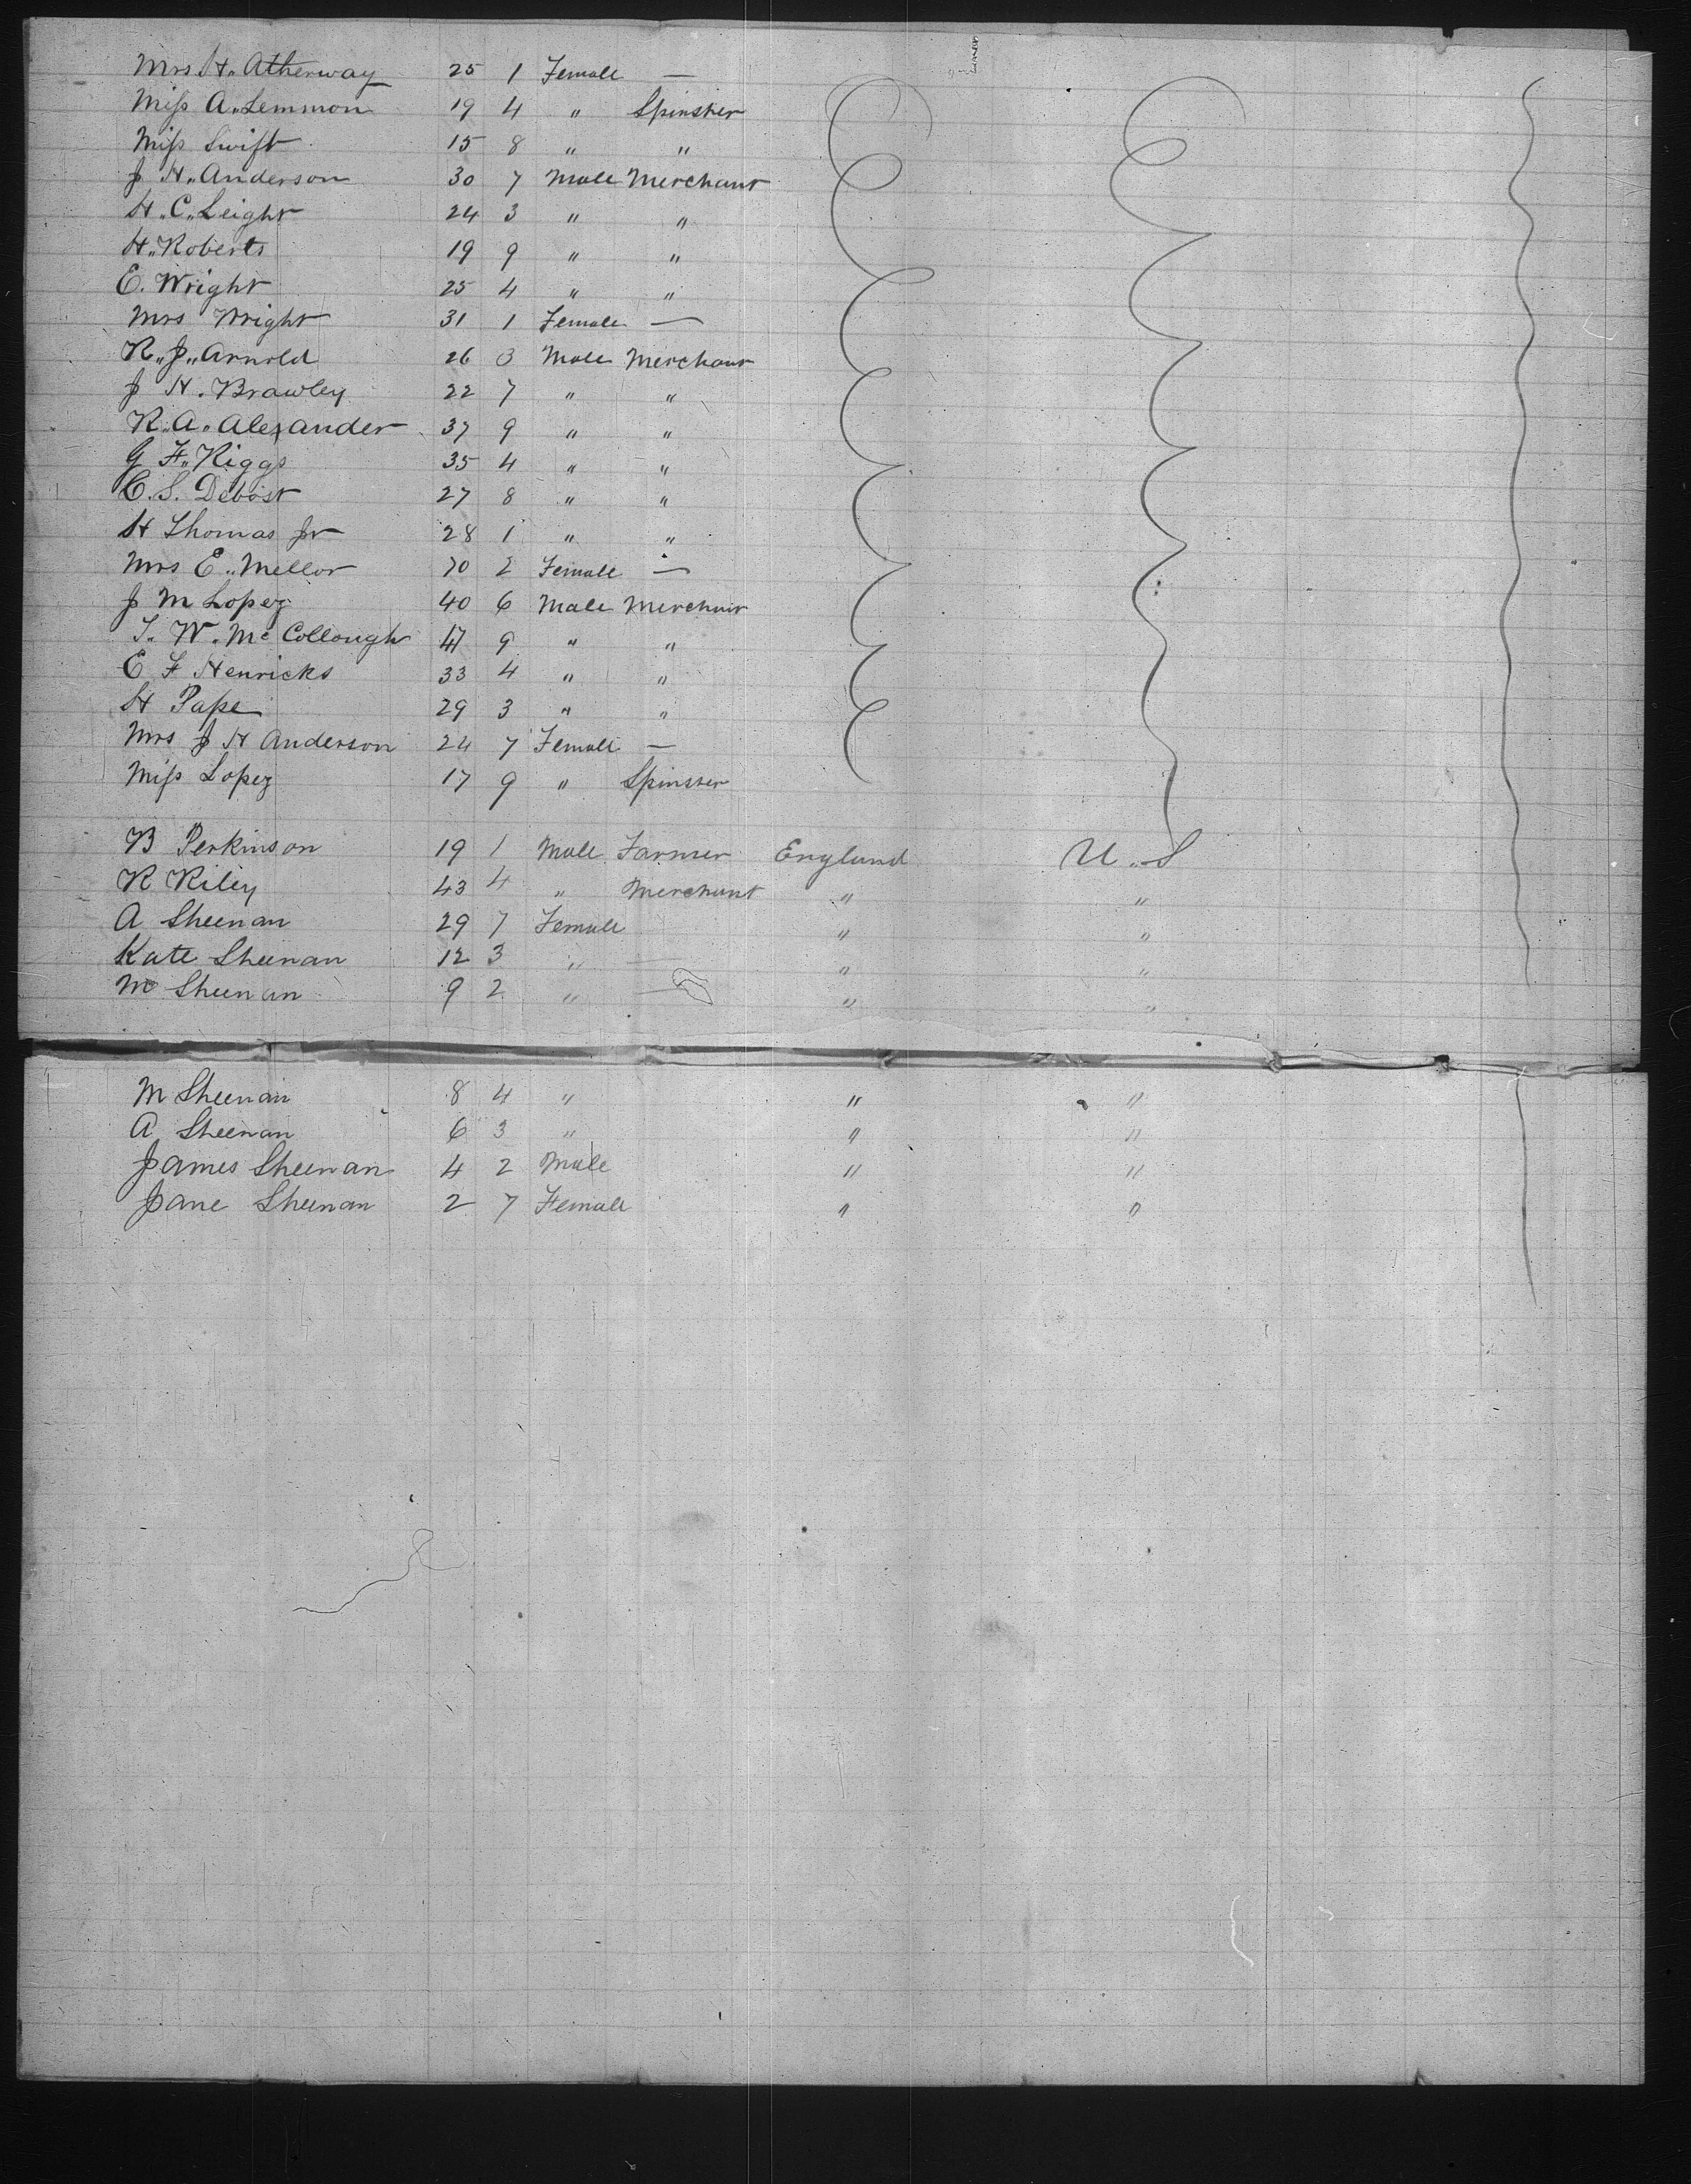 Mrs H. Atherway 25 1 Female —
Miss A. Lemmon 19 4 " Spinster
Miss Swift 15 8 " "
J H. Anderson 30 7 Male Merchant
H. C. Leight 24 3 " "
H. Roberts 19 9 " "
E. Wright 25 4 " "
Mrs Wright 31 1 Female —
R. J. Arnold 26 Male Merchant
J H. Brawley 22 7 " "
R. A. Alexander 37 9 " "
G F. Riggs 35 4 " "
C. S. Debost 27 8 " "
H Thomas Jr 28 1 " "
Mrs E. Mellor 70 2 Female —
J M Lopez 40 6 Male Merchant
W. McCollough 47 9 " "
E F Henricks 33 4 " "
H Pape 29 3 " "
Mrs J H Anderson 24 7 Female —
Miss Lopez 17 9 " Spinster
B Perkinson 19 1 Male Farmer England U.S
R Riley 43 4 " Merchant " "
A Sheenan 29 7 Female " "
Kate Sheenan 12 3 " — " "
M Sheenan 9 2 " — " "
M Sheenan 8 4 " " "
A Sheenan 6 3 " " "
James Sheenan 4 2 Male " "
Jane Sheenan 2 7 Female " "